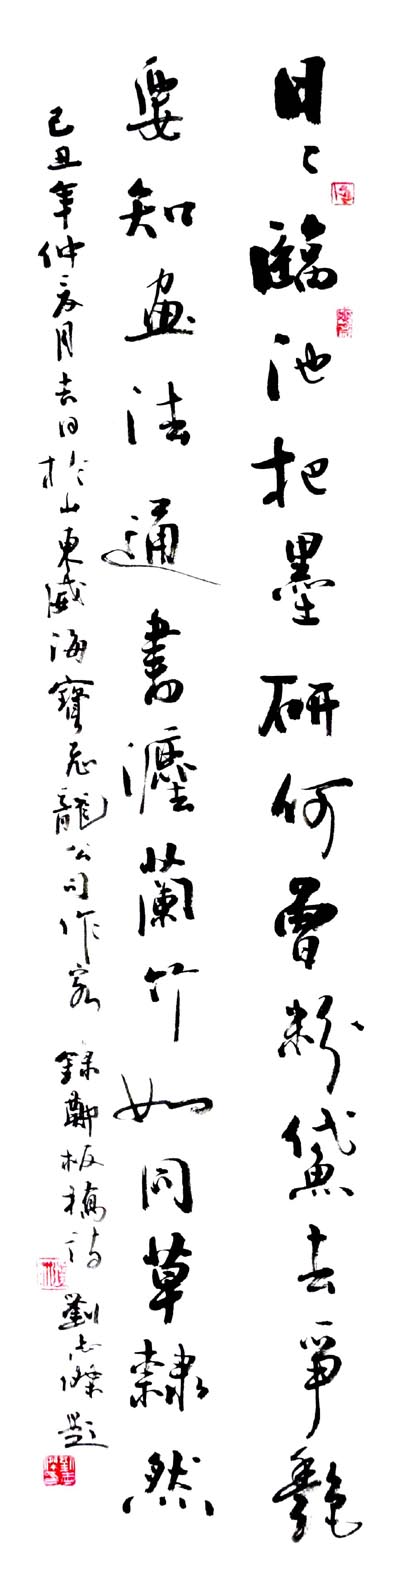 日〻臨池把墨研何曾粉黛去爭艷
要知畫法通書灋蘭竹如同草隸然
己丑年仲夏月吉日於山東威海寶飛龍公司作客 錄鄭板橋詩 劉杰 題